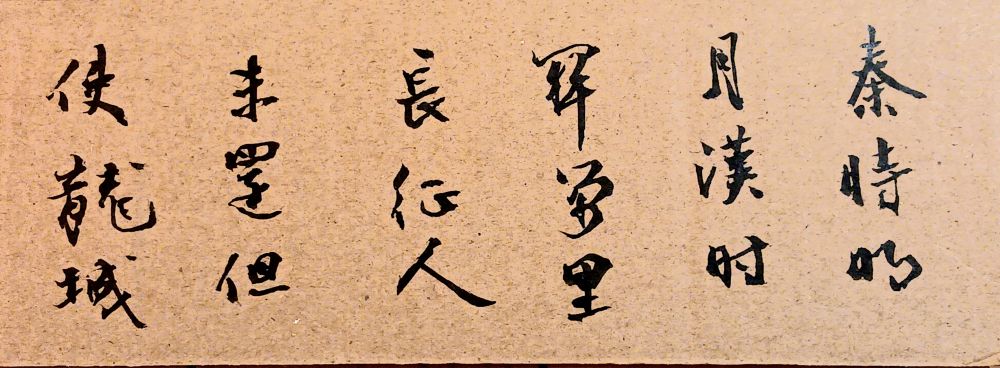 秦時明
月漢时
關萬里
長征人
未還但
使龍城